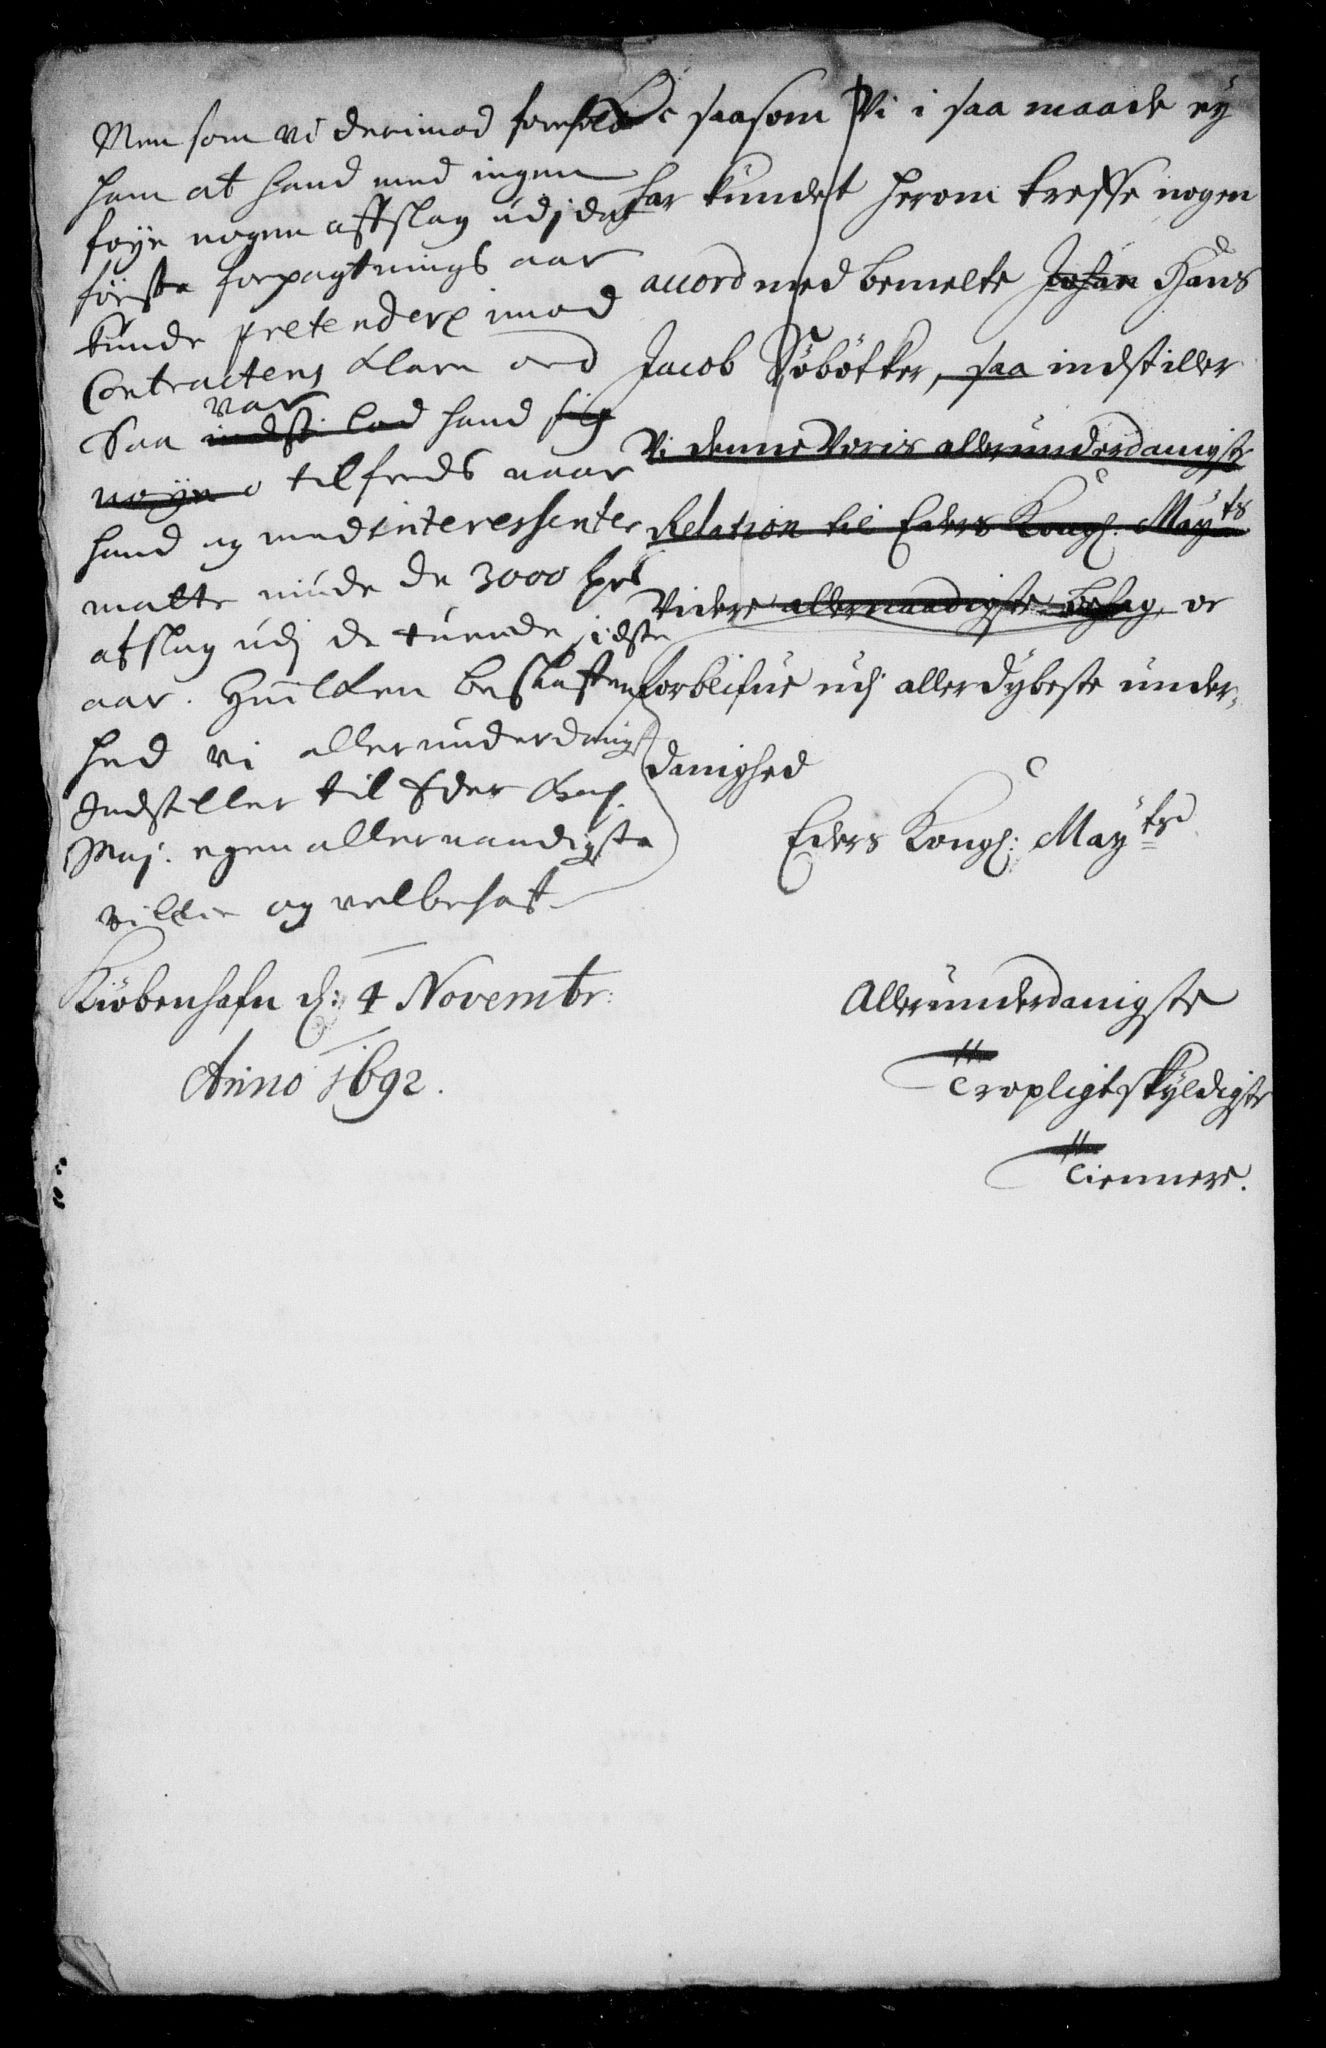 Men som vi derimod foreholt
ham at hand med ingen
føye nogen affslag udj det
første forpagtnings aar
kunde pretendere imod
Contractens klare ord
var
Saa indst: lod hand sig
nøye tilfreds naar
hand og med interessenter
matte niude de 3000
afslag udj de tuende sidste
aar. Huilken beskaffen
hed vi allerunderdanigst
Indstiller til Eders Kongl.
Maj. egen allernaadigste
villie og velbehag
saasom Vi i saa maade ey
har kundet herom treffe nogen
accord med bemelte Johan Hans
Jacob Söbötker, saa indstiller
Vi denne Voris allerunderdanigste
Relation til Eders Kongl. Mayts
Videre allernaadigste behag, oc
forblifue udj allerdybeste under,
danighed
Eders Kongl: Mayts
Kiöbenhafn d: 4 Novembr:
Anno 1692.
Allerunderdanigste
Tropligtskyldigste
Tiennere.